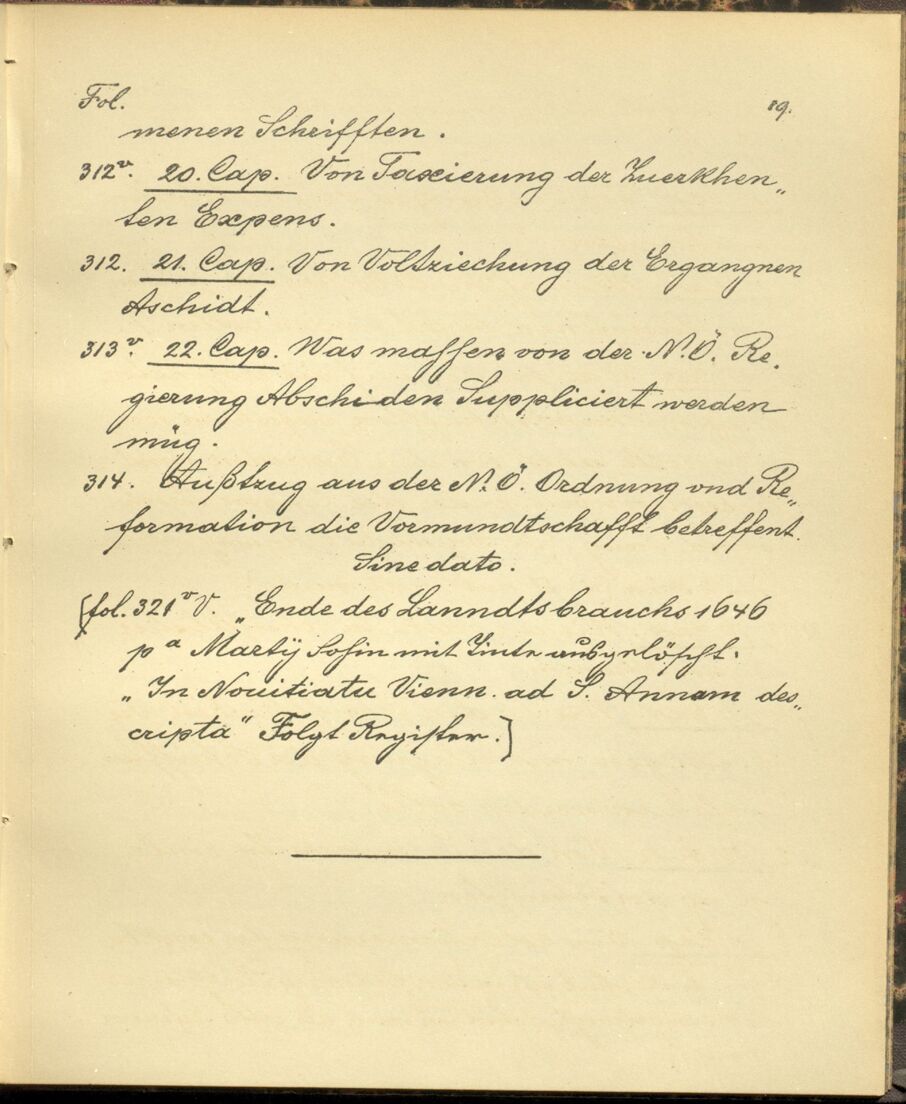 Fol. 89.
menen Schrifften.
312v. 20. Cap. Von Taxierung der Zuerkhen„
ten Expens.
312. 21. Cap. Von Voltziechung der Ergangnen
Aschidt.
313v. 22. Cap. Was massen von der N. Ö. Re„
gierung Abschiden Suppliciert werden
müg.
314. Außtzug aus der N. Ö. Ordnung vnd Re„
formation die Vormundtschafft betreffent.
Sine dato.
[fol. 321v V. „Ende des Lanndtsbrauchs 1646
pa Martÿ mit Tinte ausgelöscht.
„In Nouitiatu Vienn. ad S. Annam des„
cripta“ Folgt Register.]